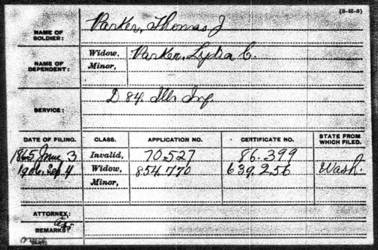 (3-15-8)
NAME OF SOLDIER: Parker, Thomas J
NAME OF DEPENDENT: Widow, Parker, Lydia C.
Minor,
SERVICE: D 84. Ills Inf.
DATE OF FILING. CLASS. APPLICATION NO. CERTIFICATE NO. STATE FROM WHICH FILED.
1865 June 3 Invalid, 70.527 86.399
Sep 4 Widow, 854.770 639.256 Wash.
Minor,
ATTORNEY:
REMARKS: